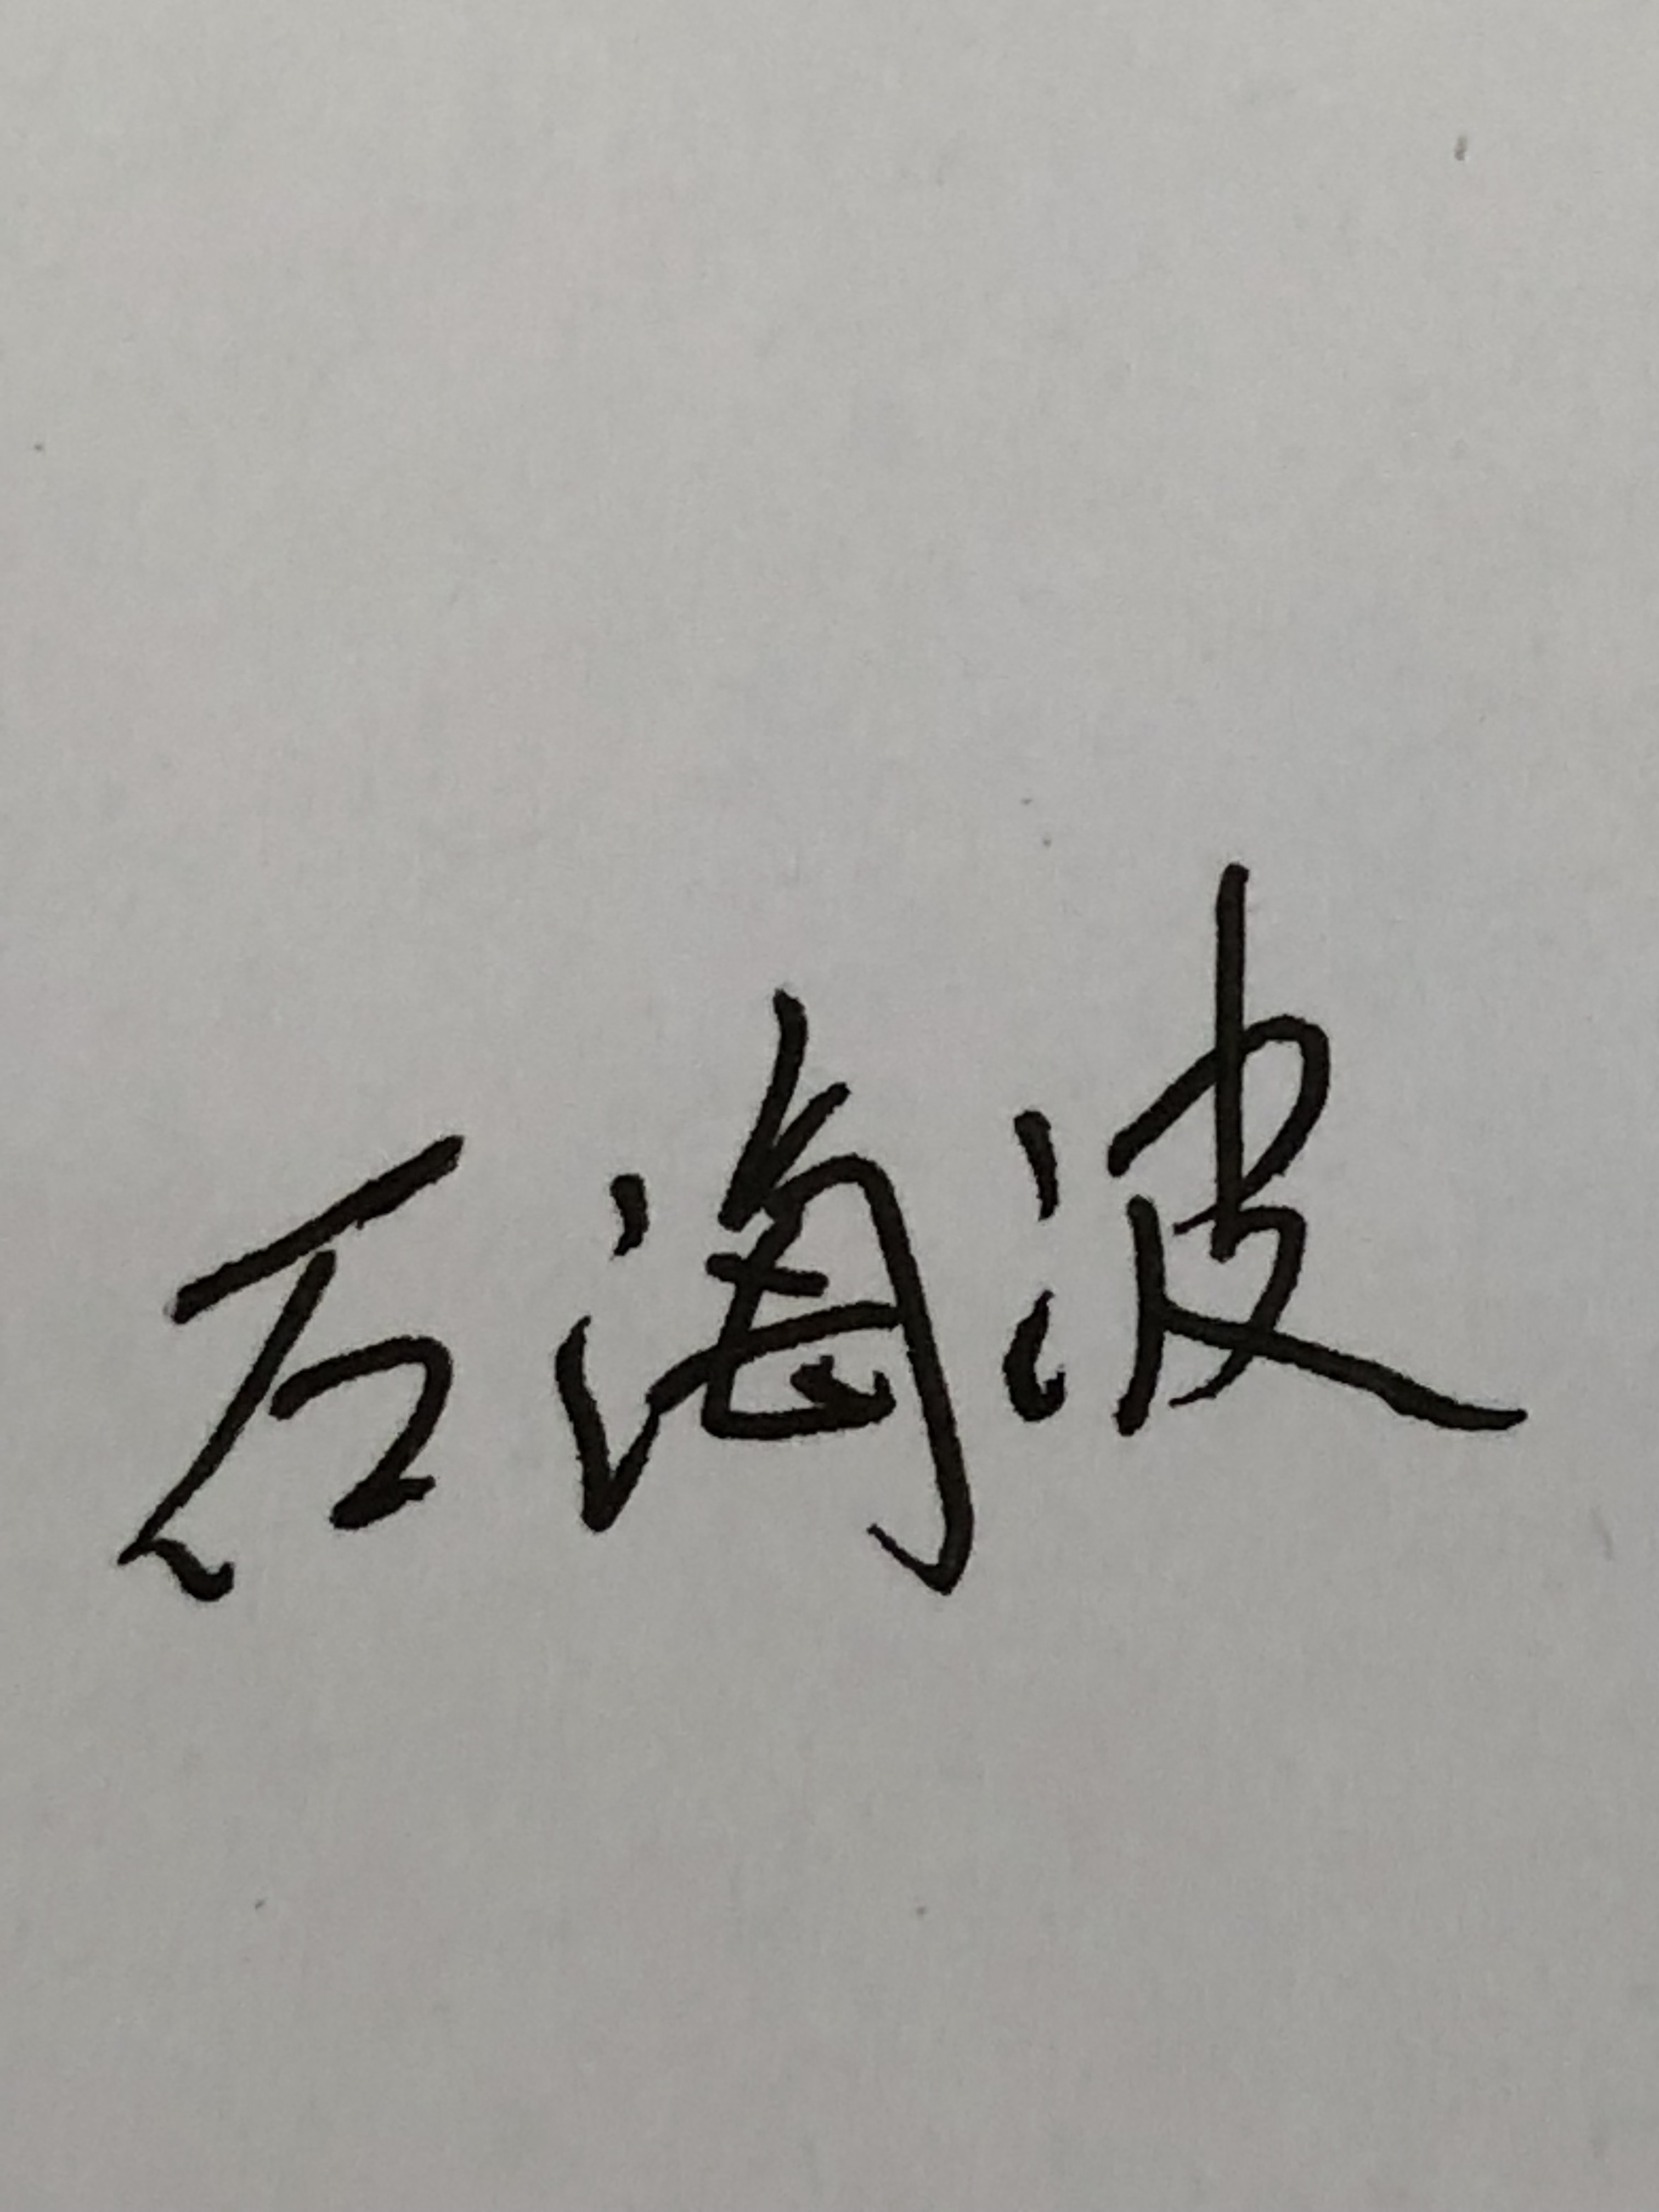 石海波